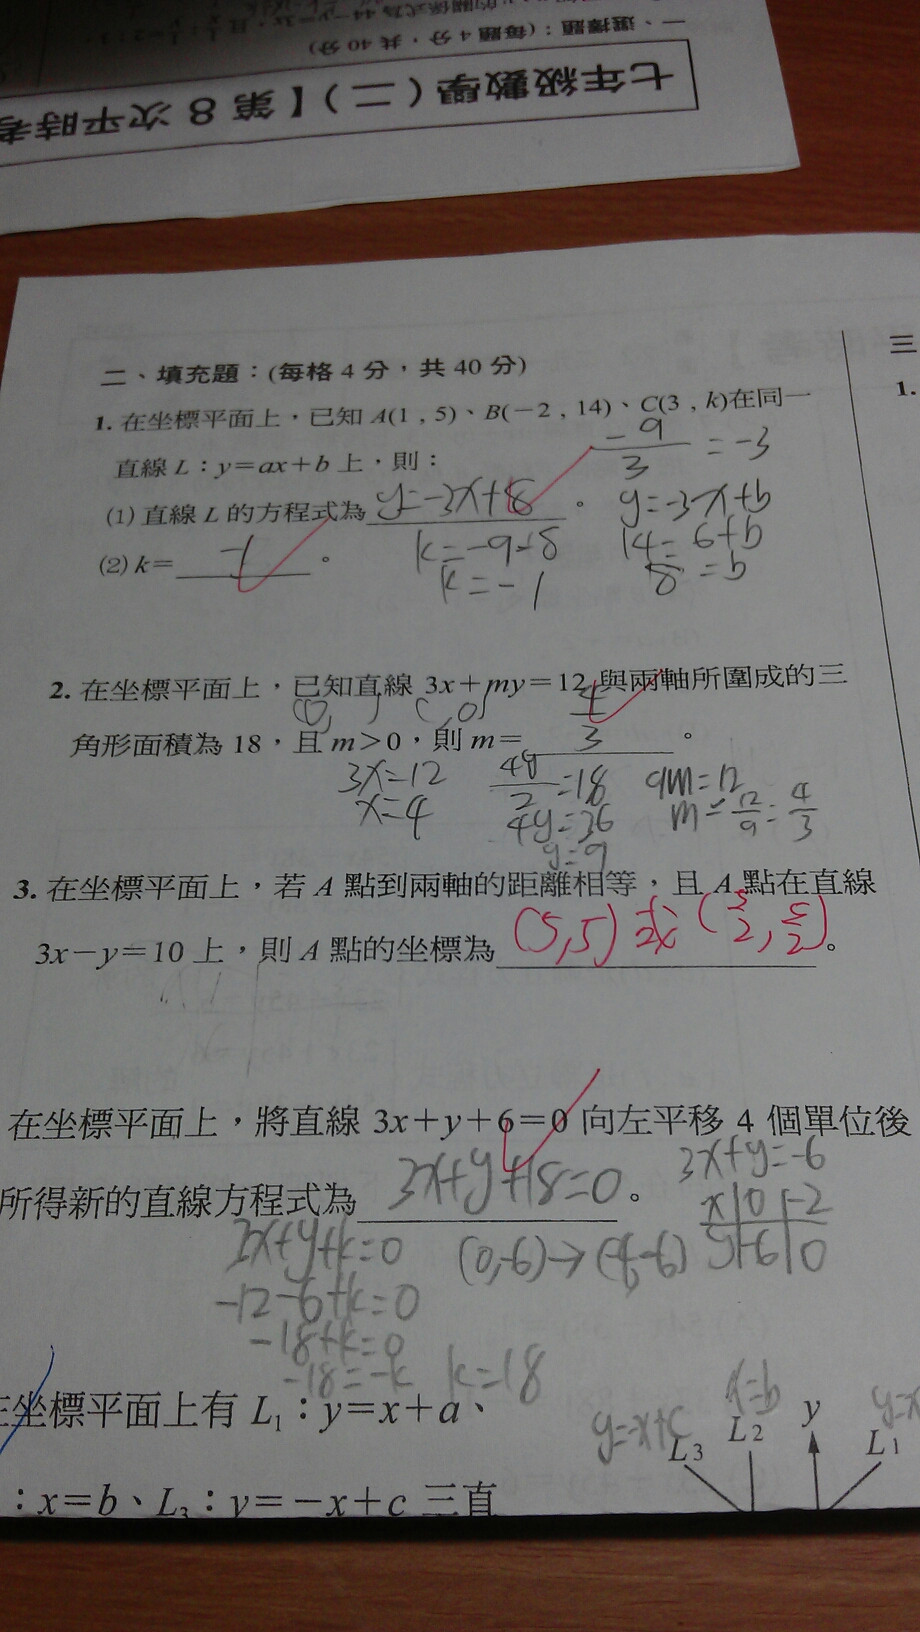 七年級數學(二)】【第 8 次平時考
一、選擇題：(每題 4 分，共 40 分)
二、填充題：(每格 4 分，共 40 分)
1. 在坐標平面上，已知 A(1 , 5)、B(−2 , 14)、C(3 , k)在同一
直線 L：y=ax+b 上，則：
−9/3 = −3
(1) 直線 L 的方程式為 y=−3x+8 。
y=−3x+b
(2) k= −1 。
k=−9+8
14=6+b
k=−1
8=b
2. 在坐標平面上，已知直線 3x+my=12 與兩軸所圍成的三
角形面積為 18，且 m>0，則 m= 4/3 。
3x=12
4y/2=18
9m=12
x=4
4y=36
m=12/9=4/3
y=9
3. 在坐標平面上，若 A 點到兩軸的距離相等，且 A 點在直線
3x−y=10 上，則 A 點的坐標為 (5,5) 或 (5/2, 5/2)。
在坐標平面上，將直線 3x+y+6=0 向左平移 4 個單位後
所得新的直線方程式為 3x+y+18=0 。
3x+y=−6
x 0 −2
y −6 0
3x+y+k=0
−12−6+k=0
−18+k=0
−18=−k k=18
坐標平面上有 L1：y=x+a、
：x=b、L3：y=−x+c 三直
y=−x+c
x=b
L3
L2
y
L1
三
1.